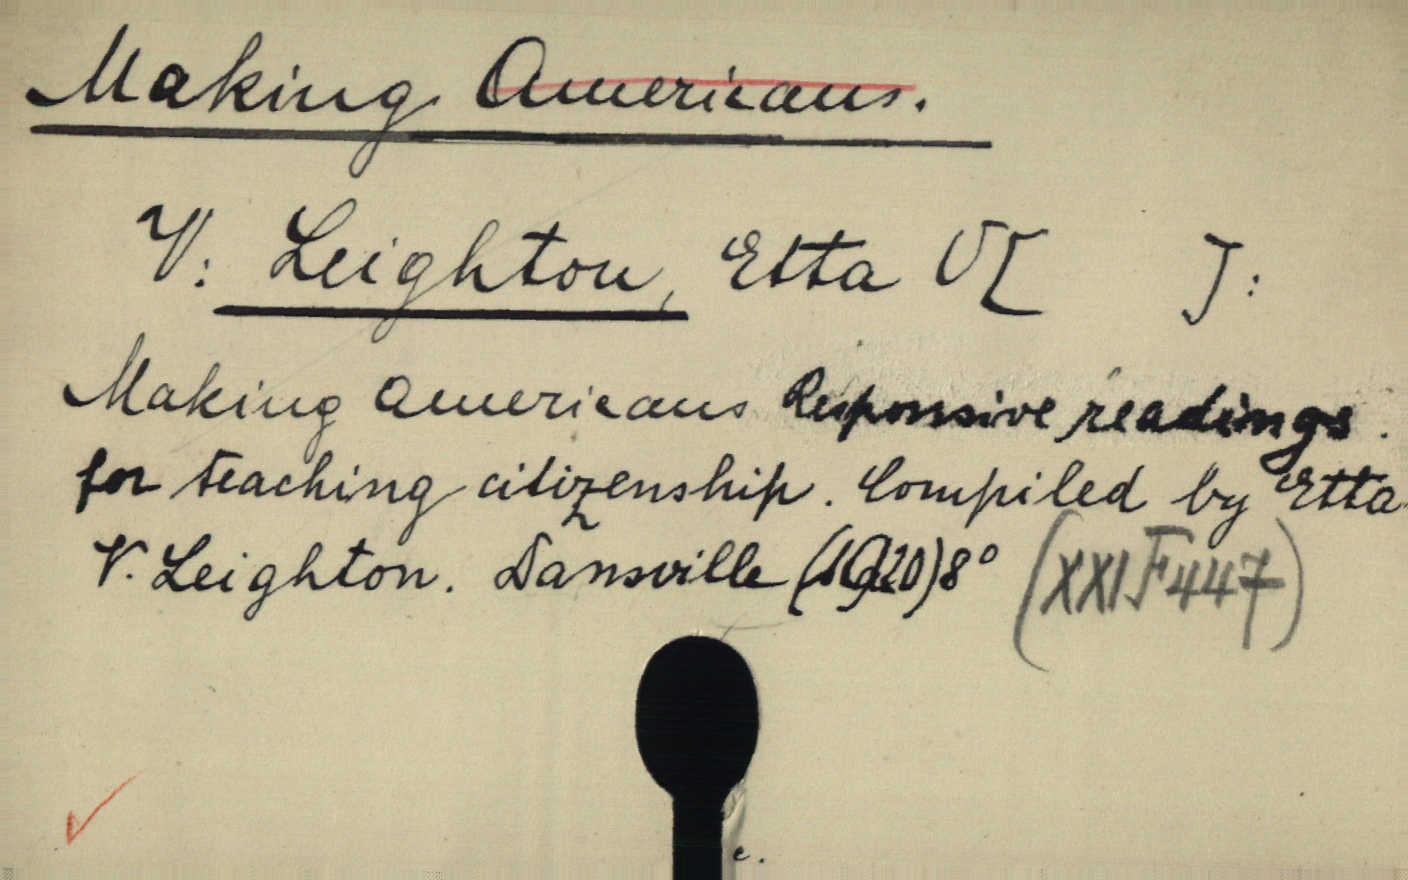 Making Americans.
V: Leighton, Etta V[ ]:
Making Americans Responsive readings.
for teaching citizenship. Compiled by Etta
V. Leighton. Dansville (1920) 8°
(XXI F 447)
c.